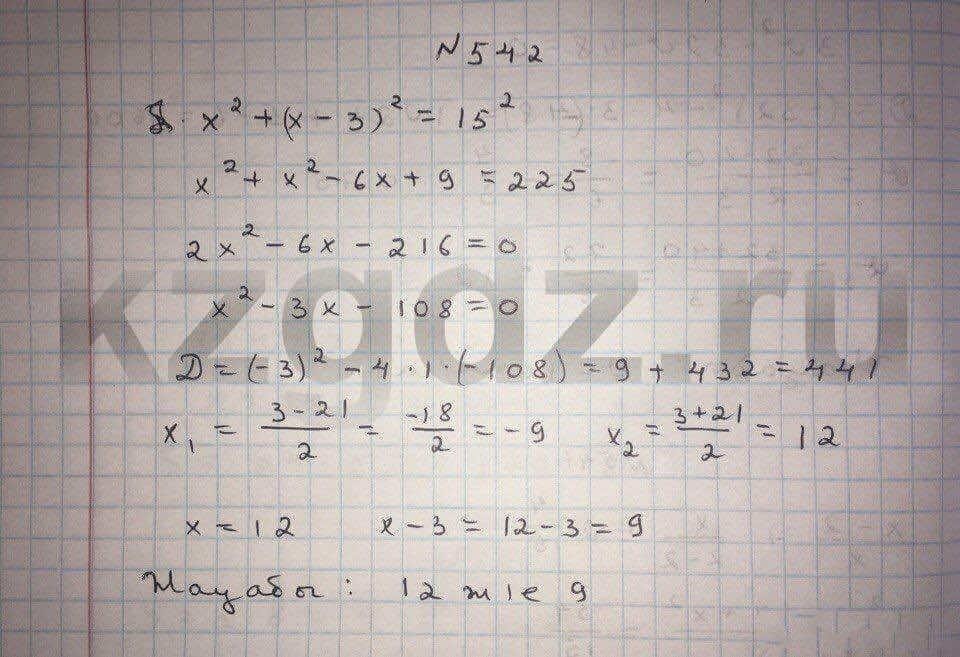 N 542
x² + (x - 3)² = 15²
x² + x² - 6x + 9 = 225
2x² - 6x - 216 = 0
x² - 3x - 108 = 0
D = (-3)² - 4 · 1 · (-108) = 9 + 432 = 441
x₁ = (3 - 21)/2 = -18/2 = -9 x₂ = (3 + 21)/2 = 12
x = 12 x - 3 = 12 - 3 = 9
Жауабы: 12 және 9
kzgdz.ru